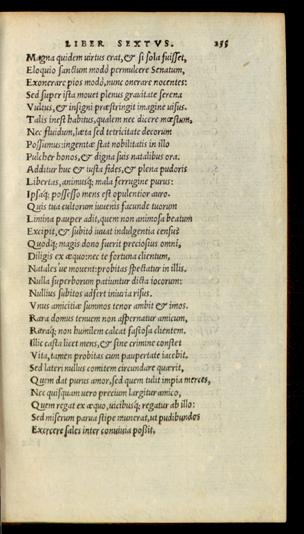 LIBER SEXTVS. 255
Magna quidem uirtus erat, & si sola fuisset,
Eloquio sanctum modò permulcere Senatum,
Exonerare pios modò, nunc onerare nocentes:
Sed super ista mouet plenus grauitate serena
Vultus, & insigni præstringit imagine uisus.
Talis inest habitus, qualem nec dicere mœstum,
Nec fluidum, læta sed tetricitate decorum
Possumus: ingentæ stat nobilitatis in illo
Pulcher honos, & digna suis natalibus ora.
Additur huc & iusta fides, & plena pudoris
Libertas, animusq; mala ferrugine purus:
Ipsaq; possesso mens est opulentior auro.
Quis tua cultorum iuuenis facunde tuorum
Limina pauper adit, quem non animosa beatum
Excipit, & subitò iuuat indulgentia censu?
Quodq; magis dono fuerit preciosius omni,
Diligis ex æquo: nec te fortuna clientum,
Natales ue mouent: probitas spectatur in illis.
Nulla superborum patiuntur dicta iocorum:
Nullius subitos adfert iniuria risus.
Vnus amicitiæ summos tenor ambit & imos.
Rara domus tenuem non aspernatur amicum,
Raraq; non humilem calcat fastosa clientem.
Illic casta licet mens, & sine crimine constet
Vita, tamen probitas cum paupertate iacebit.
Sed lateri nullus comitem circundare quærit,
Quem dat purus amor, sed quem tulit impia merces,
Nec quisquam uero precium largitur amico,
Quem regat ex æquo, uicibusq; regatur ab illo:
Sed miserum parua stipe munerat, ut pudibundos
Exercere sales inter conuiuia possit,